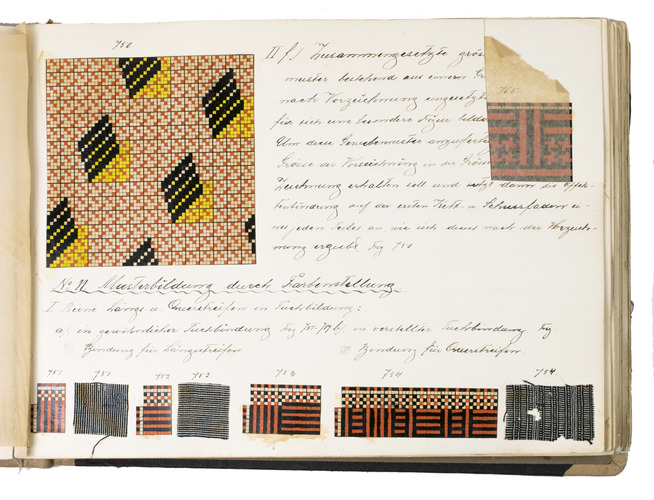 750
II f.) Zusammengesetzte grös
muster bestehend aus einem
nach Vorzeichnung umgesetzt
für sich eine besondere Figur bilde
Um diese Gewebemuster anzufert
Grösse der Vorzeichnung in die Grös
Zeichnung erhalten soll und setzt dann die Effekt-
bindung auf die ersten Kett- u. Schussfaden ei-
nes jeden Teiles an wie sich dieses nach der Vorzeich-
nung ergiebt. Fig 750
760
No 12 Musterbildung durch Farbenstellung
I Reine Längs u. Querstreifen in Tuchbildung:
a) in gewöhnlicher Tuchbindung Fig 751- b) in verstellter Tuchbindung Fig
Bindung für Längsstreifen
Bindung für Querstreifen
751 751 752 752 753 754 754